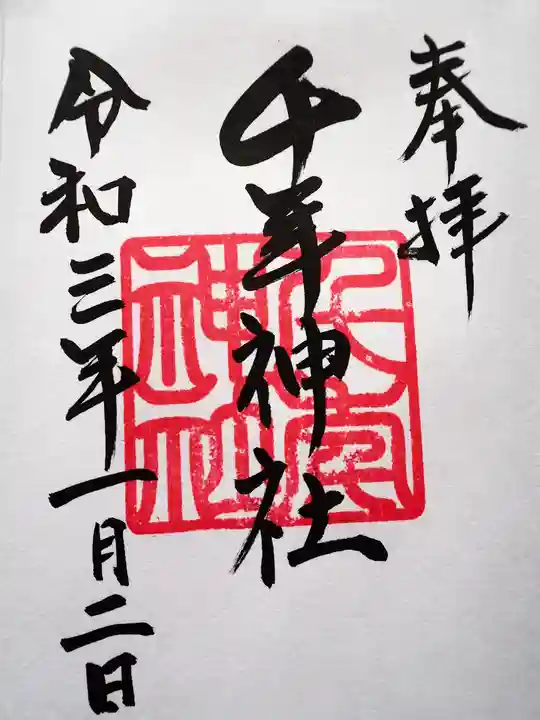 奉拝
千年神社
令和三年一月二日
神社